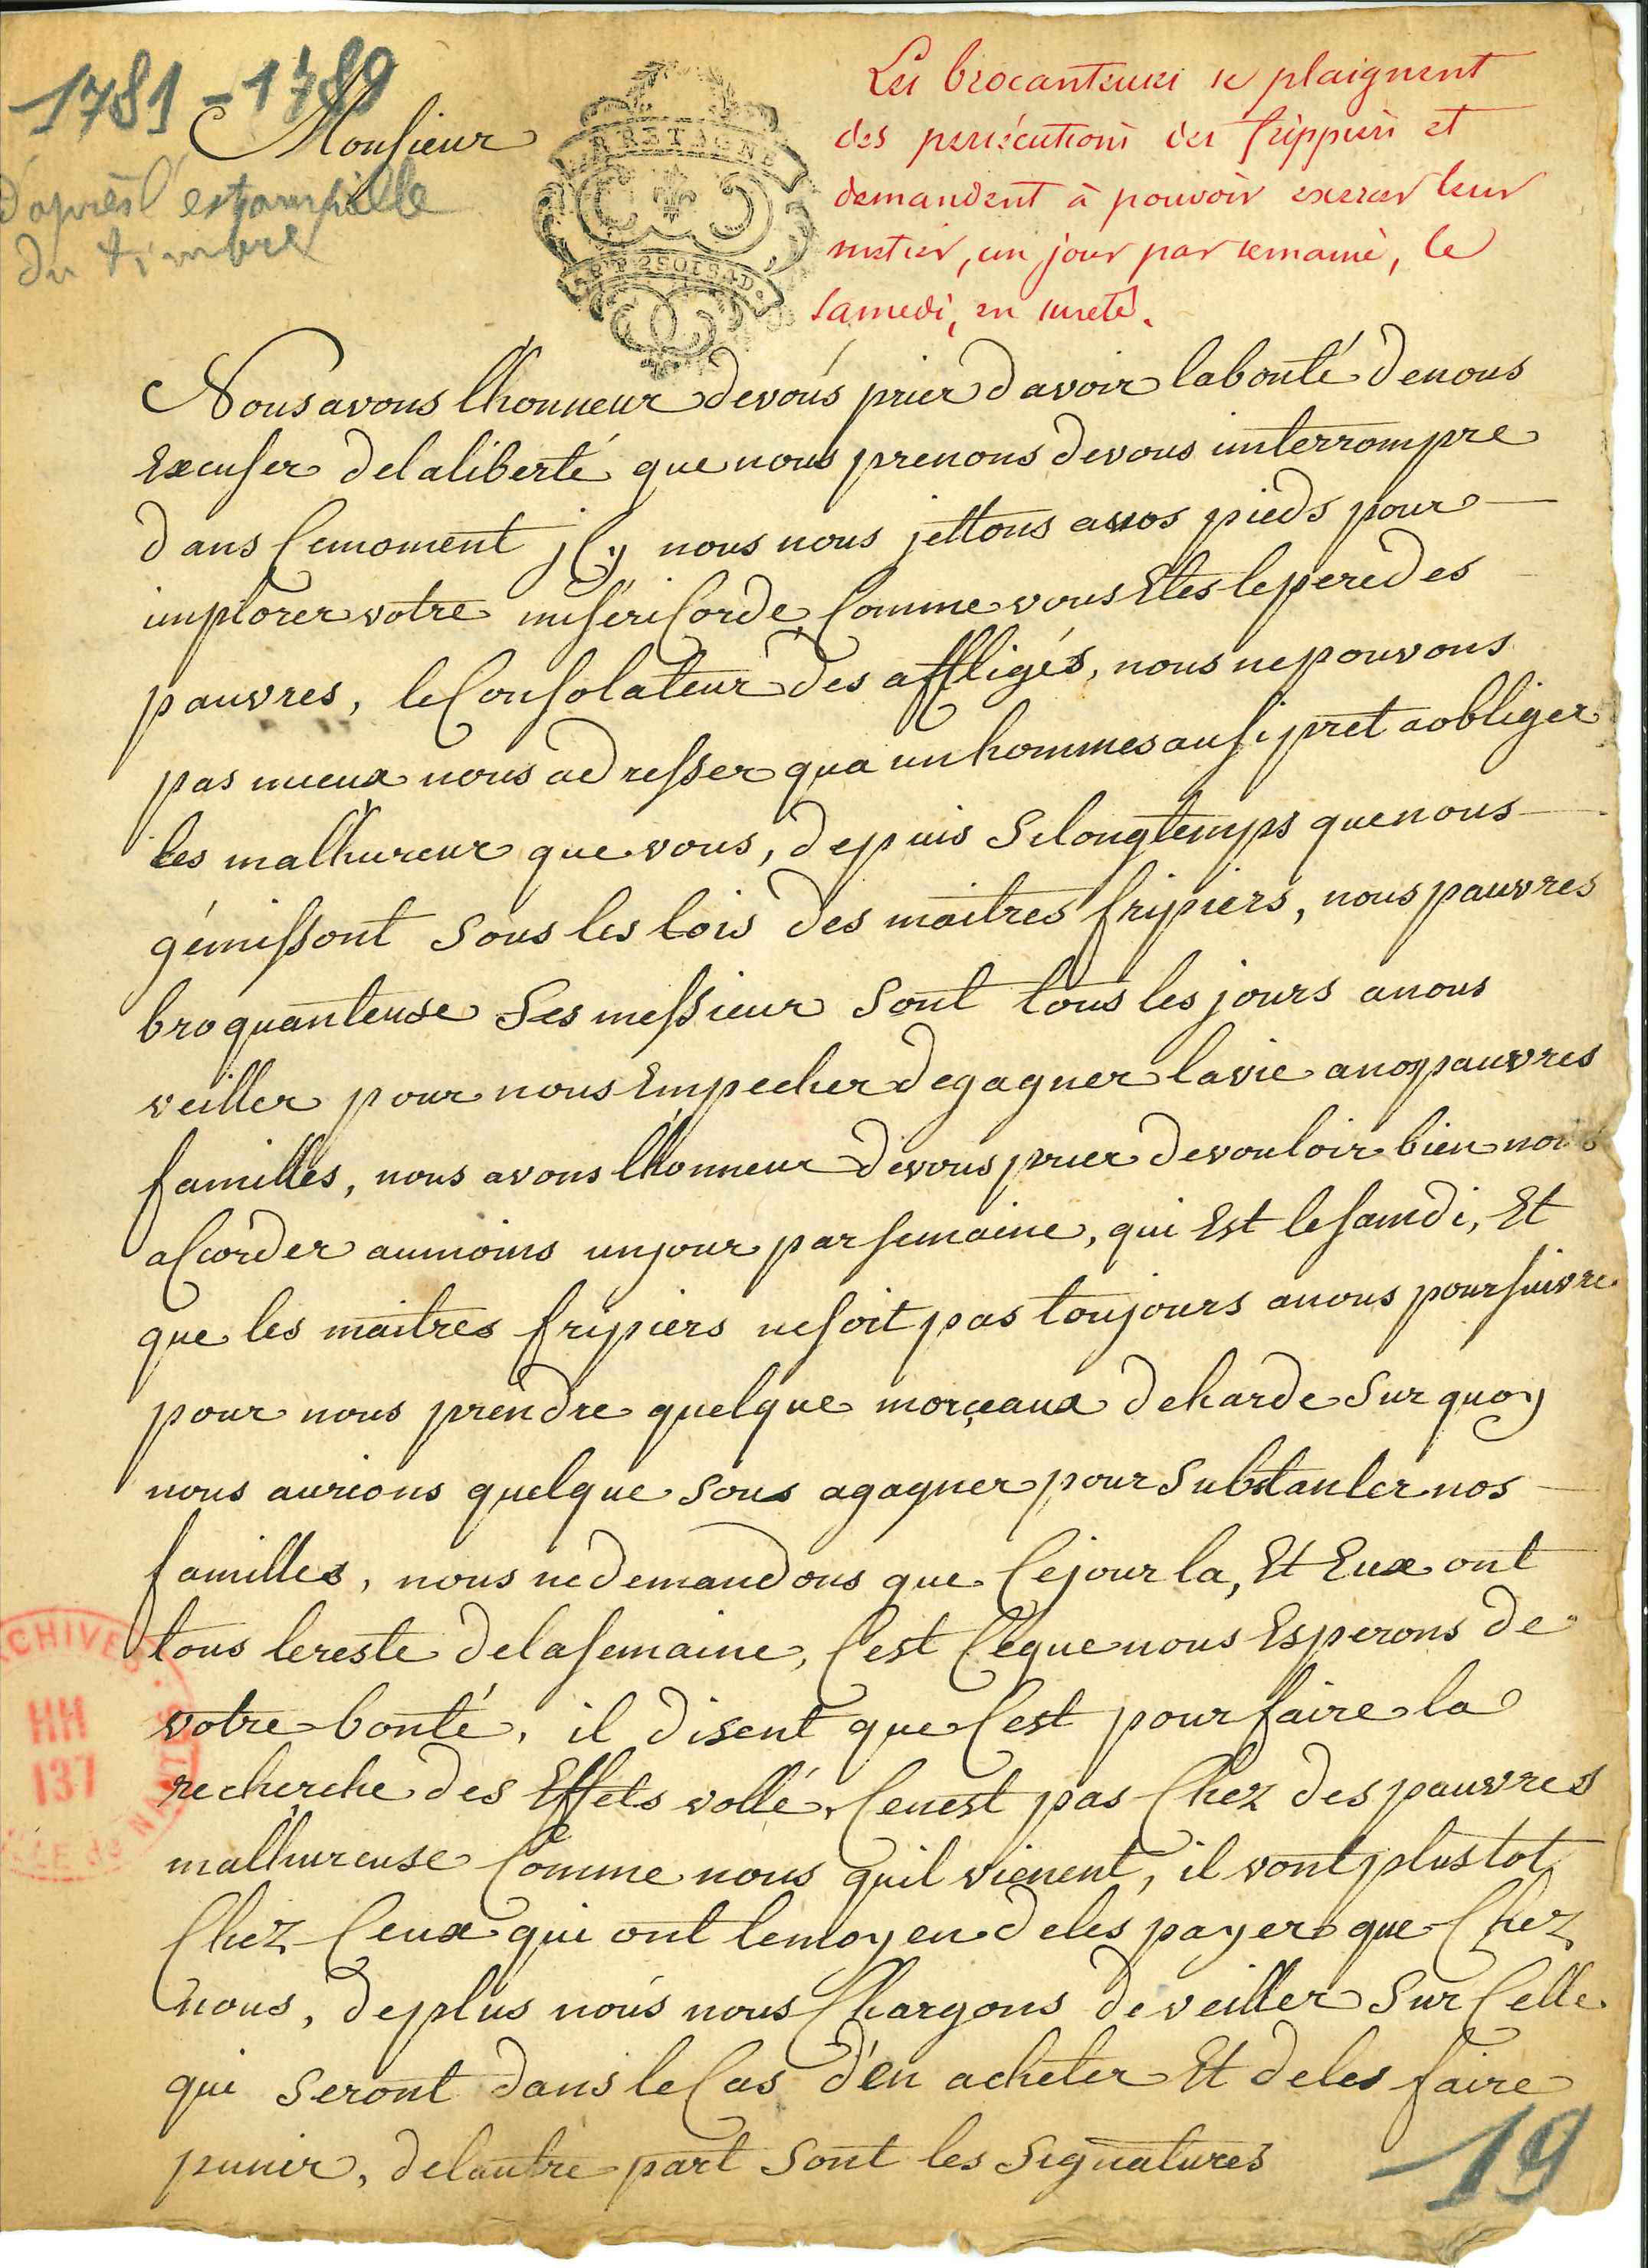 1781-1789
d'après l'estampille
du timbre
Les brocanteuses se plaignent
des persécutions des frippiers et
demandent à pouvoir exercer leur
metier, un jour par semaine, le
samedi, en sureté.
BRETAGNE
Monsieur
Nous avons lhonneur de vous prier davoir la bonté de nous
Excuser de la liberté que nous prenons de vous interrompre
dans ce moment icy nous nous jettons a vos pieds pour
implorer votre miséricorde comme vous Etes le pere des
pauvres, le Consolateur des affligés, nous ne pouvons
pas mieux nous adresser qua un hommes ausi pret a obliger
les malhureux que vous, depuis si longtemps que nous
gémissont sous les lois des maitres fripiers, nous pauvres
broquanteuse Ses messieur sont tous les jours a nous
veiller pour nous Empecher de gagner la vie a nos pauvres
familles, nous avons lhonneur de vous prier de vouloir bien nous
accorder au moins un jour par semaine, qui Est le samdi, Et
que les maitres fripiers ne soit pas toujours a nous poursuivre
pour nous prendre quelque morçeaux de harde sur quoy
nous aurions quelque sous a gagner pour substanter nos
familles, nous ne demandons que ce jour la, Et Eux ont
tous le reste de la semaine, Cest Ce que nous Esperons de
votre bonté, il disent que Cest pour faire la
recherche des Effets vollé, Ce nest pas Chez des pauvres
malhureuse Comme nous quil vienent, il vont plus tot
Chez Ceux qui ont le moyen de les payer que Chez
nous, de plus nous nous Chargons de veiller sur Celle
qui seront dans le Cas d'en acheter Et de les faire
punir, de lautre part sont les signatures
ARCHIVES
HH
137
VILLE de NANTES
19